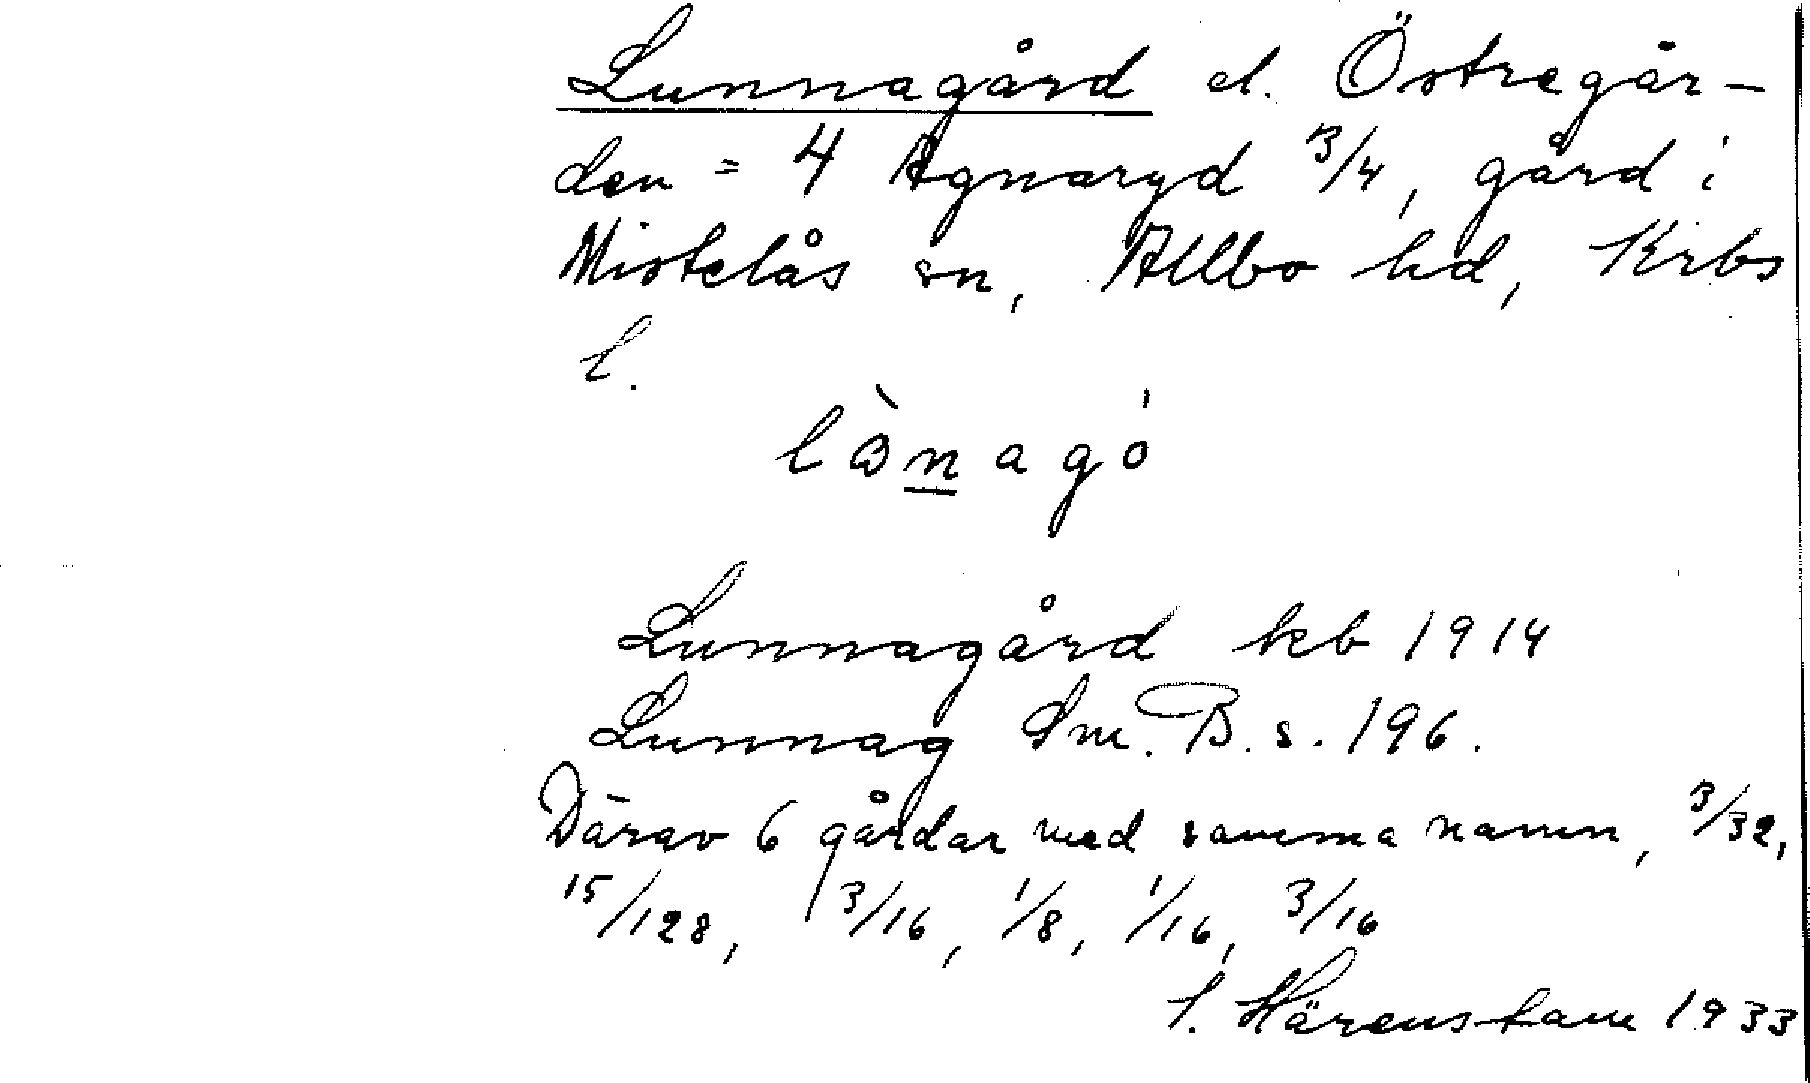 Lunnagård el. Östregår-
den = 4 Agnaryd 3/4, gård i
Mistelås sn, Allbo hd, Krbs
l.
lònagó
Lunnagård kb 1914
Lunnag Sm. B. s. 196.
Därav 6 gårdar med samma namn, 3/32,
15/128, 3/16, 1/8, 1/16, 3/16
S. Härenstam 1933